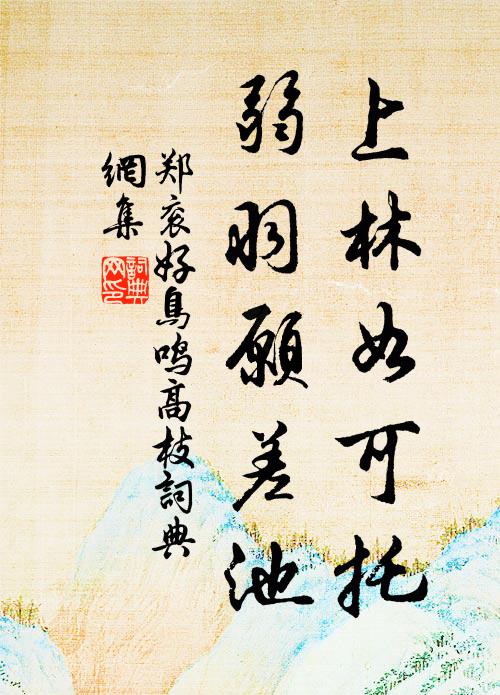 上林如可托
弱羽愿差池
郑衮好鸟鸣高枝词典
网集
詞典
网印